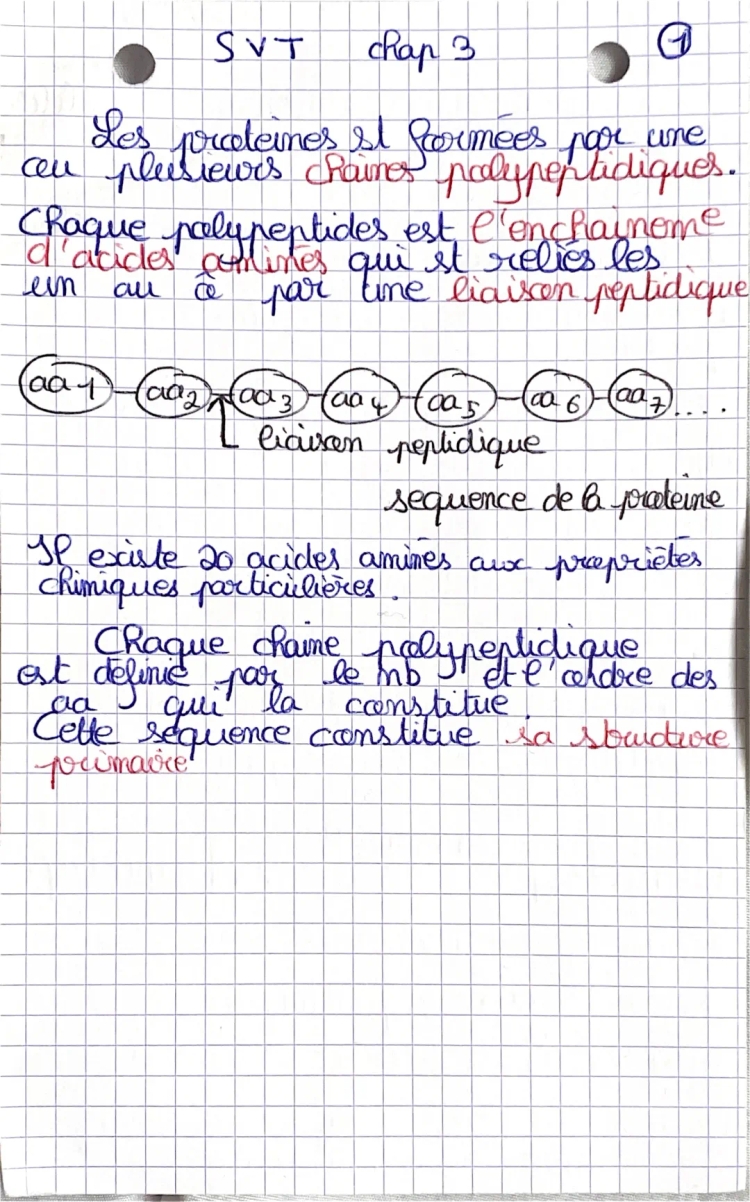 SVT chap 3 1
Les proteines st formées par une
ou plusieurs chaines polypeptidiques.
Chaque polypeptides est l'enchaineme
d'acides aminés qui st reliés les
un au par une liaison peptidique
aa1 aa2 aa3 aa4 aa5 aa6 aa7....
liaison peptidique
sequence de la proteine
Il existe 20 acides aminés aux propriétés
chimiques particulières.
Chaque chaine polypeptidique
est définie par le nb et l'ordre des
aa qui la constitue.
Cette séquence constitue sa structure
primaire